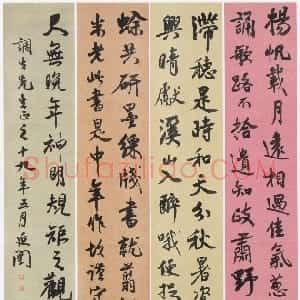 楊帆載月遠相過佳氣葱
誦歌路不拾遺知政肅野
滯穗是時和天分秋暑
興晴獻溪山入醉哦便捉
蜍共研墨綵牋書就翦
米老此書是中年作故謹守
尺無晚年神明規矩之觀
先生正之十年五月
Shufazidao.COM